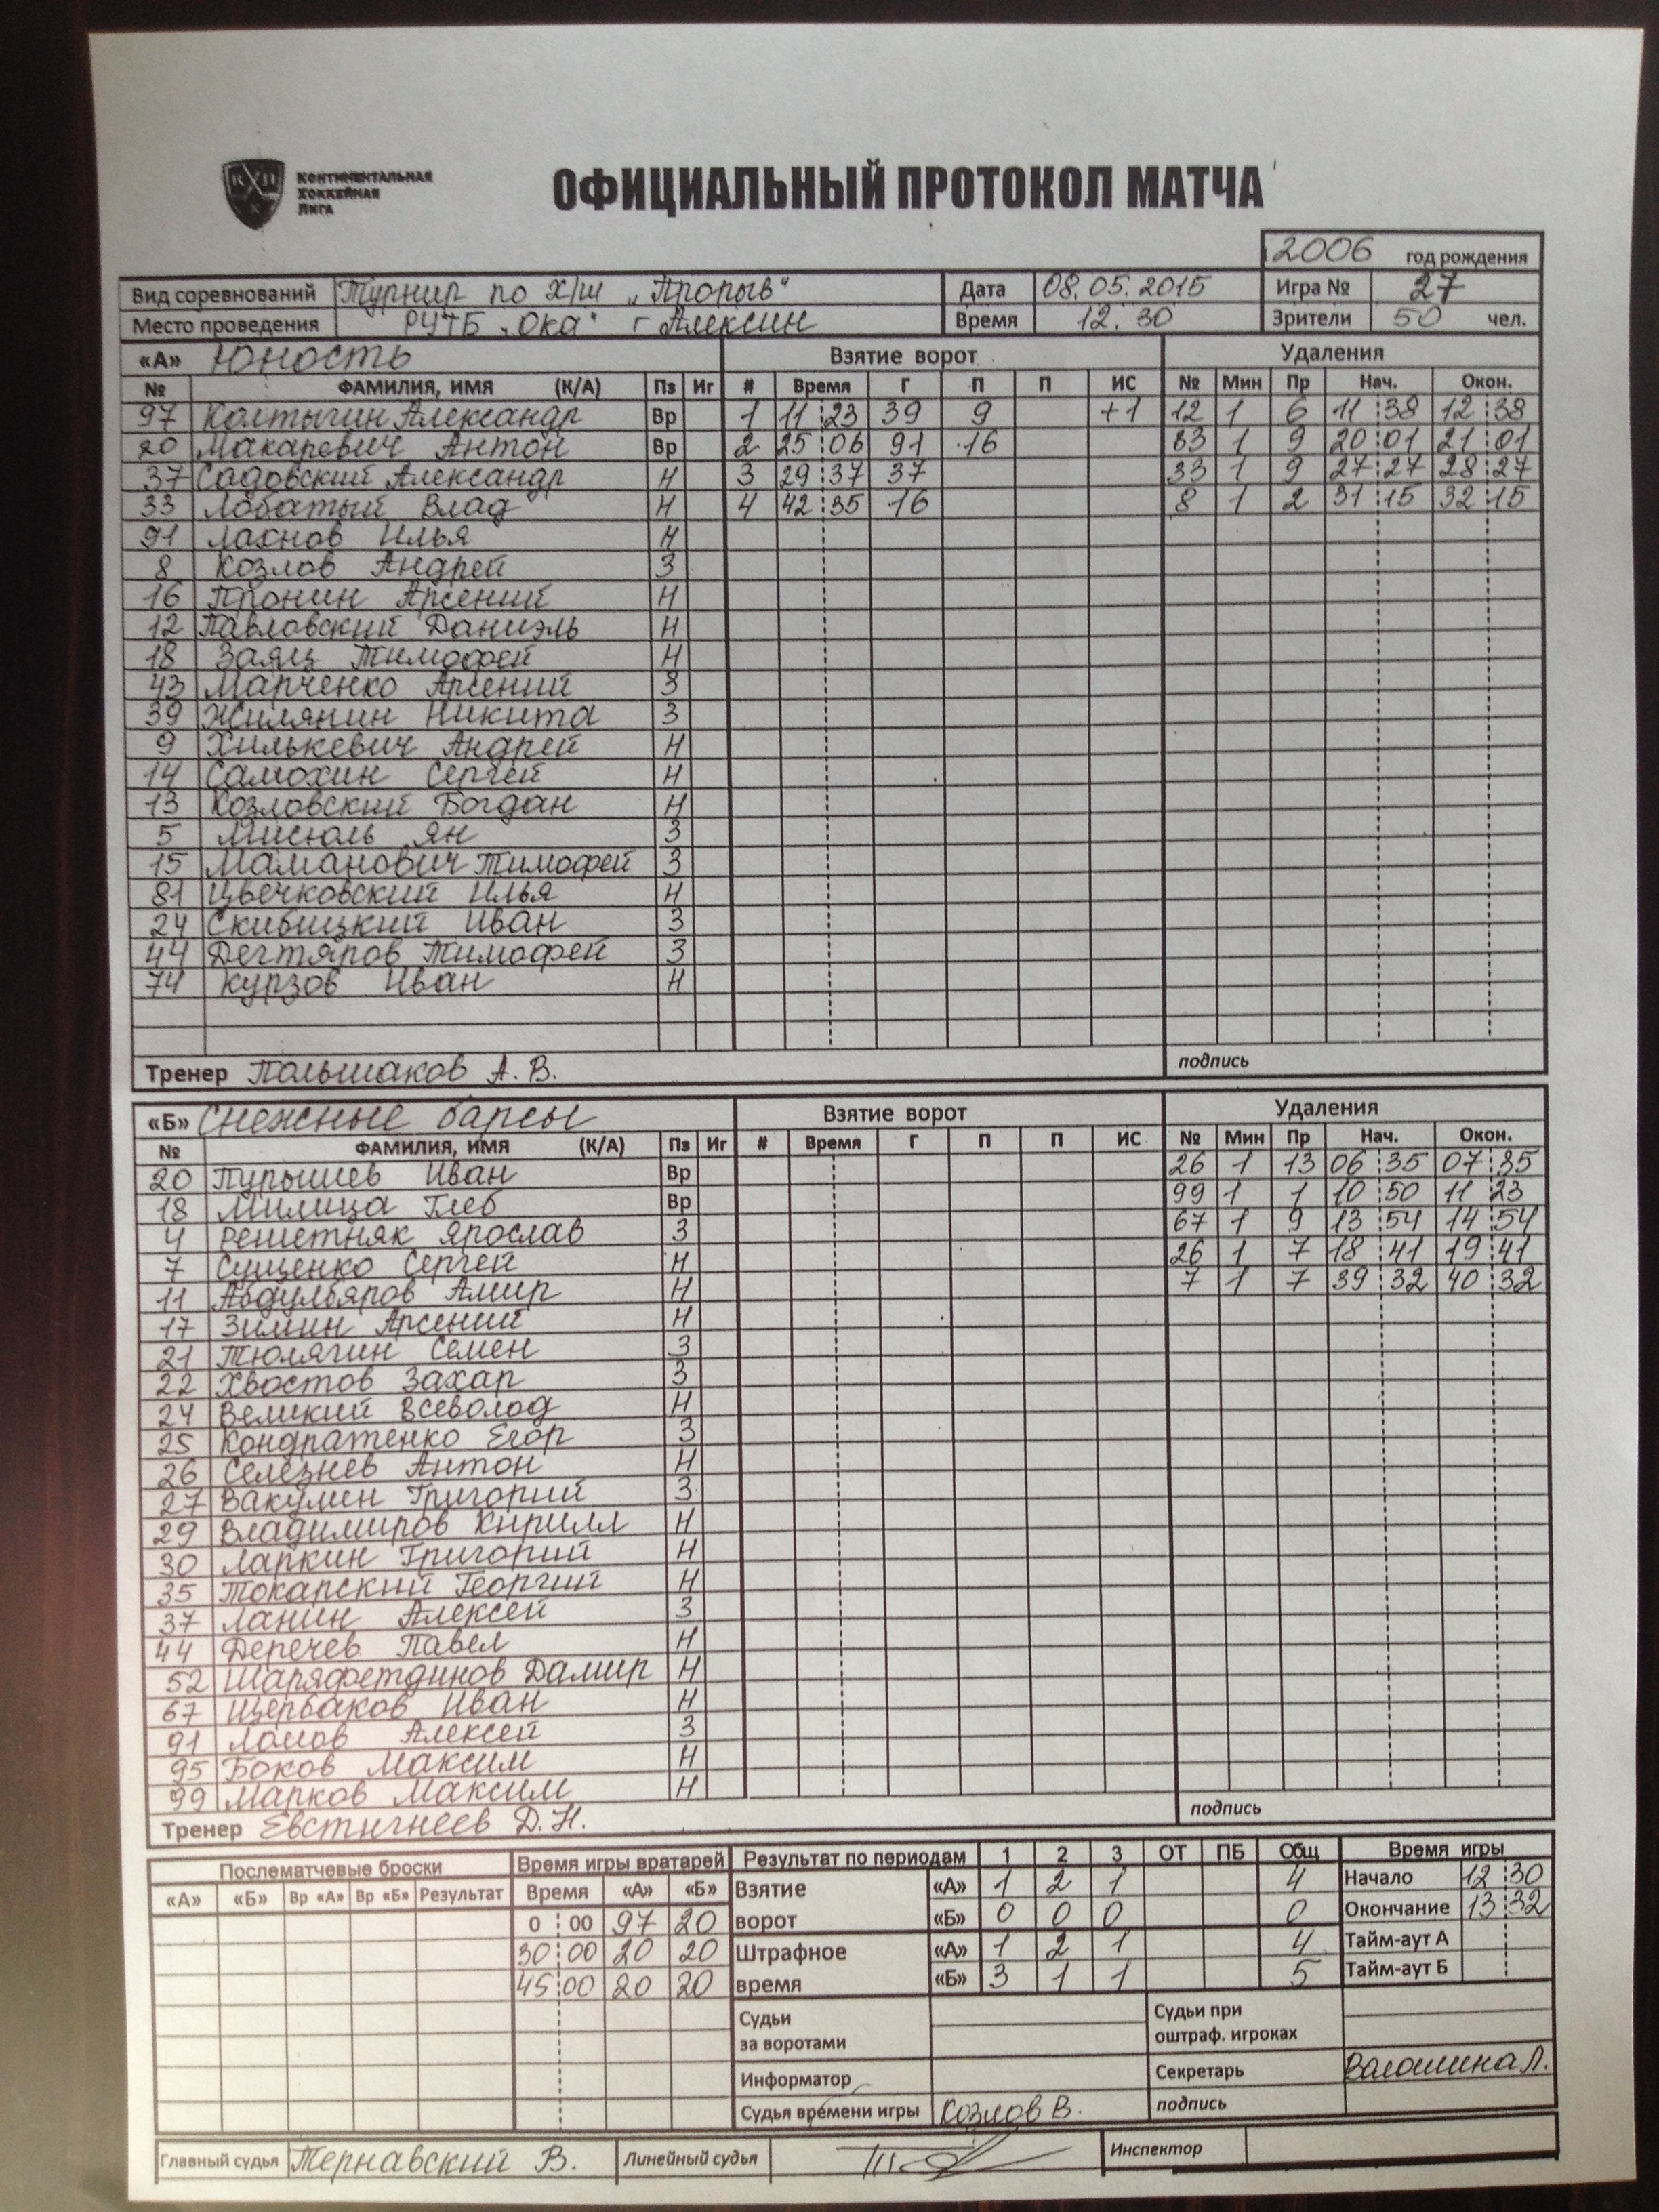 КОНТИНЕНТАЛЬНАЯ
ХОККЕЙНАЯ
ЛИГА
ОФИЦИАЛЬНЫЙ ПРОТОКОЛ МАТЧА
2006 год рождения
Вид соревнований Турнир по х/ш „Прорыв“ Дата 08.05.2015 Игра № 27
Место проведения РУТБ „Ока“ г Алексин Время 12.30 Зрители 50 чел.
«А» Юность Взятие ворот Удаления
№ ФАМИЛИЯ, ИМЯ (К/А) Пз Иг # Время Г П П ИС № Мин Пр Нач. Окон.
97 Колтыгин Александр Вр 1 11 23 39 9 +1 12 1 6 11 38 12 38
20 Макаревич Антон Вр 2 25 06 91 16 83 1 9 20 01 21 01
37 Садовский Александр Н 3 29 37 37 33 1 9 27 27 28 27
33 Лобатый Влад Н 4 42 35 16 8 1 2 31 15 32 15
91 Лахнов Илья Н
8 Козлов Андрей З
16 Пронин Арсений Н
12 Павловский Даниэль Н
18 Заяц Тимофей Н
43 Марченко Арсений З
39 Жилянин Никита З
9 Хилькевич Андрей Н
14 Самохин Сергей Н
13 Козловский Богдан Н
5 Мисюль Ян З
15 Маманович Тимофей З
81 Цвечковский Илья Н
24 Скибицкий Иван З
44 Дегтяров Тимофей З
74 Курзов Иван Н
Тренер Польшаков А. В. подпись
«Б» Снежные барсы Взятие ворот Удаления
№ ФАМИЛИЯ, ИМЯ (К/А) Пз Иг # Время Г П П ИС № Мин Пр Нач. Окон.
20 Пурышев Иван Вр 26 1 13 06 35 07 35
18 Милица Глеб Вр 99 1 1 10 50 11 23
4 Решетняк Ярослав З 67 1 9 13 54 14 54
7 Сущенко Сергей Н 26 1 7 18 41 19 41
11 Абдулбяров Амир Н 7 1 7 39 32 40 32
17 Зимин Арсений Н
21 Тюлягин Семен З
22 Хвостов Захар З
24 Великий Всеволод Н
25 Кондратенко Егор З
26 Селезнев Антон Н
27 Вакулин Григорий З
29 Владимиров Кирилл Н
30 Лапкин Григорий Н
35 Токарский Георгий Н
37 Ланин Алексей З
44 Деречев Павел Н
52 Шаряфетдинов Дамир Н
67 Щербаков Иван Н
91 Ломов Алексей З
95 Боков Максим Н
99 Марков Максим Н
Тренер Евстигнеев Д. Н. подпись
Послематчевые броски Время игры вратарей Результат по периодам 1 2 3 ОТ ПБ Общ Время игры
«А» «Б» Вр «А» Вр «Б» Результат Время «А» «Б» Взятие «А» 1 2 1 4 Начало 12 30
0 00 97 20 ворот «Б» 0 0 0 0 Окончание 13 32
30 00 20 20 Штрафное «А» 1 2 1 4 Тайм-аут А
45 00 20 20 время «Б» 3 1 1 5 Тайм-аут Б
Судьи за воротами Судьи при оштраф. игроках
Информатор Секретарь Валошина Л.
Судья времени игры Козлов В. подпись
Главный судья Тернавский В. Линейный судья Инспектор